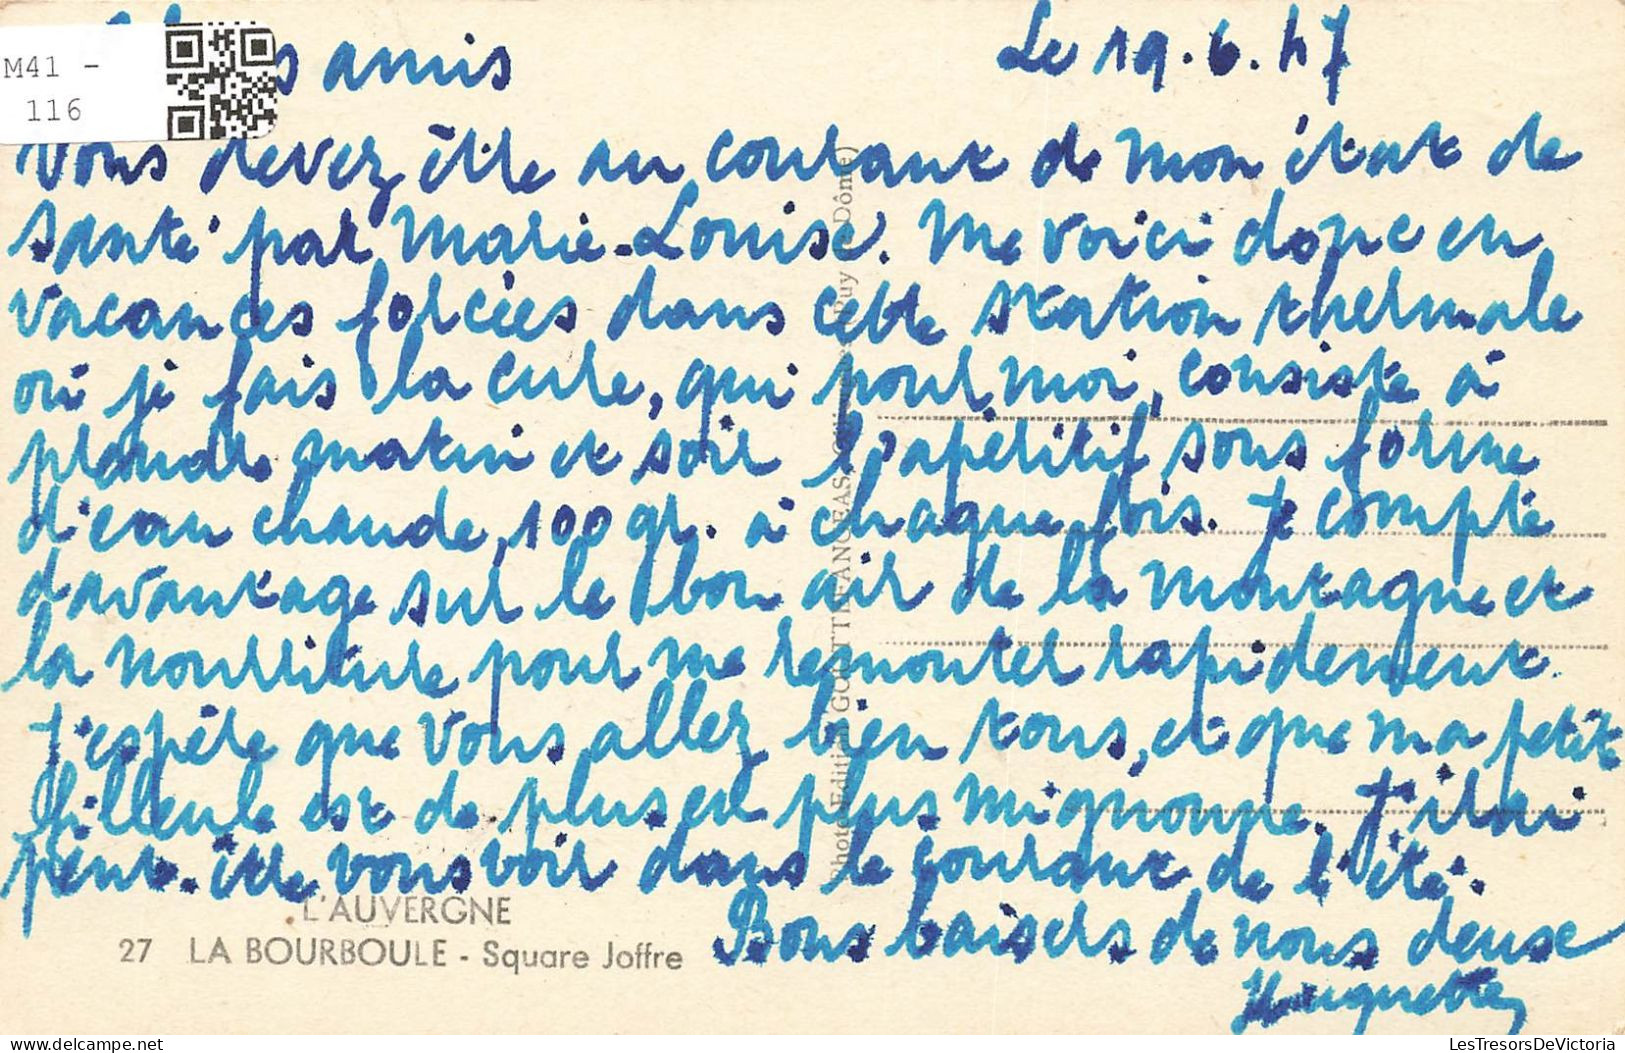 M41 -
116
amis
Le 19.6.47
Vous devez être au courant de mon état de
santé par Marie-Louise. Me voici donc en
vacances forcées dans cette station thermale
où je fais la cure, qui pour moi, consiste à
prendre matin et soir l'apéritif sous forme
d'eau chaude, 100 gr. à chaque fois. Je compte
davantage sur le bon air de la montagne et
la nourriture pour me remonter rapidement.
J'espère que vous allez bien tous, et que ma petite
filleule est de plus en plus mignonne. J'irai
peut-être vous voir dans le courant de l'été.
Bons baisers de nous deux
Huguette
L'AUVERGNE
27 LA BOURBOULE - Square Joffre
Photo-Édition GOUTTEFANGEAS
(Puy-de-Dôme)
delcampe.net
LesTresorsDeVictoria